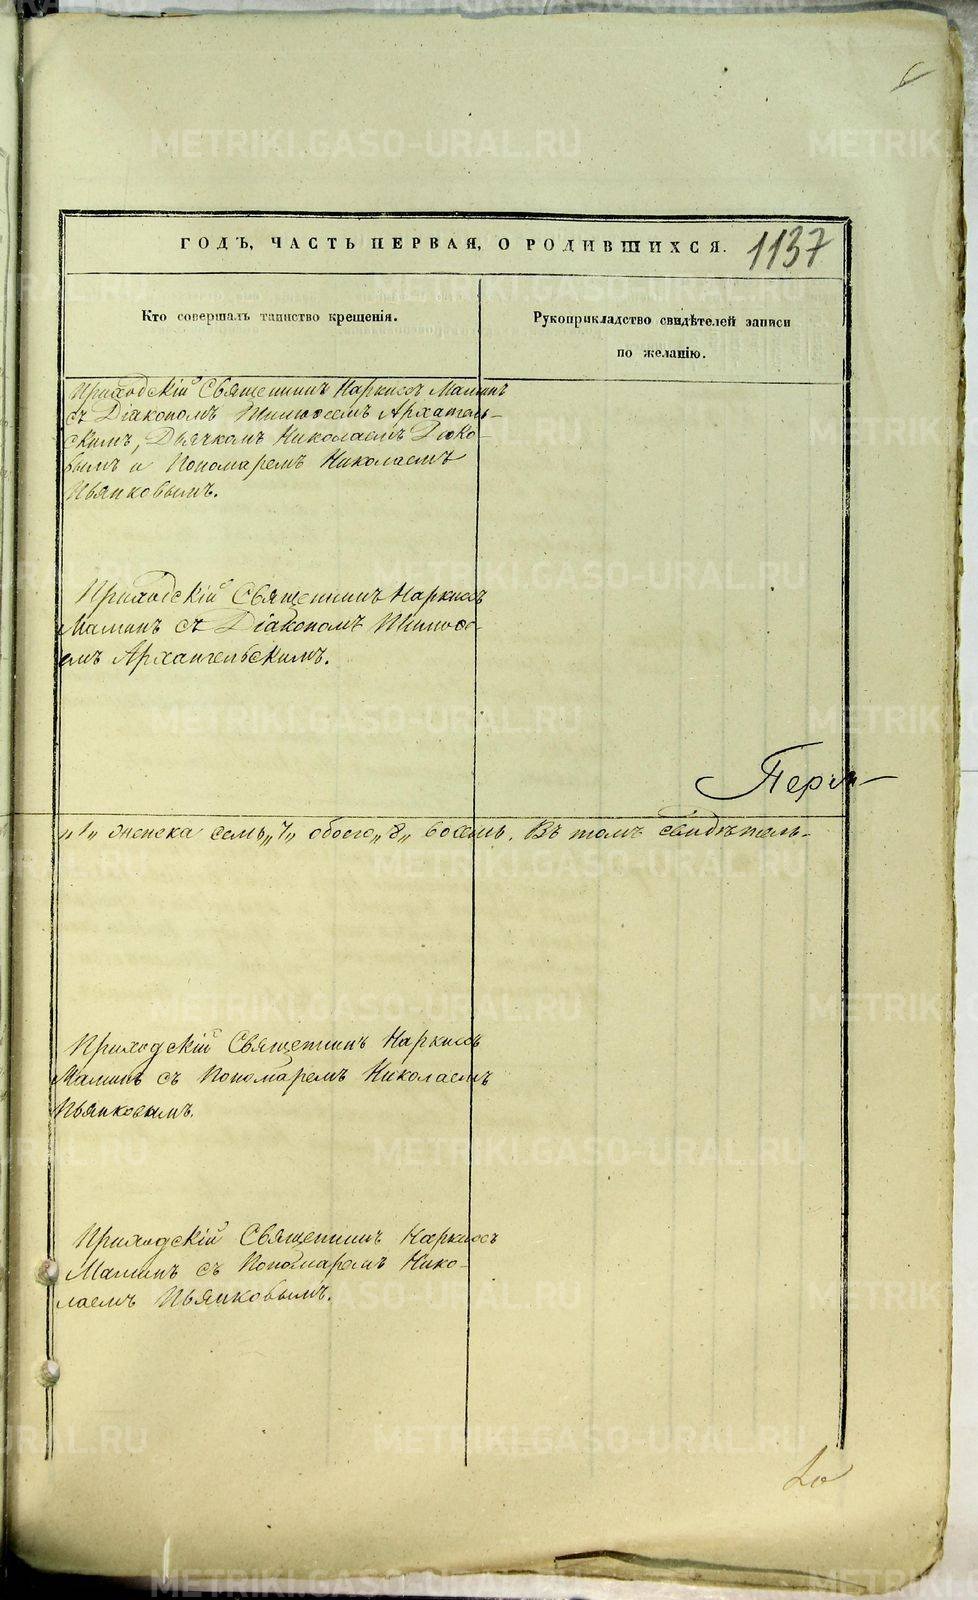 6
ГОДЪ, ЧАСТЬ ПЕРВАЯ, О РОДИВШИХСЯ.
1137
Кто совершалъ таинство крещенія.
Рукоприкладство свидѣтелей записи
по желанію.
Приходскій Священникъ Наркисъ Маминъ
съ Діакономъ Тимофеемъ Архангель-
скимъ, Дьячкомъ Николаемъ Дюко-
вымъ и Пономаремъ Николаемъ
Пьянковымъ.
Приходскій Священникъ Наркисъ
Маминъ съ Діакономъ Тимофе-
емъ Архангельскимъ.
Перм-
„1„ женска семь„7„ обоего„8„ восемь. Въ томъ свидѣтель-
Приходскій Священникъ Наркисъ
Маминъ съ Пономаремъ Николаемъ
Пьянковымъ.
Приходскій Священникъ Наркисъ
Маминъ съ Пономаремъ Нико-
лаемъ Пьянковымъ.
METRIKI.GASO-URAL.RU